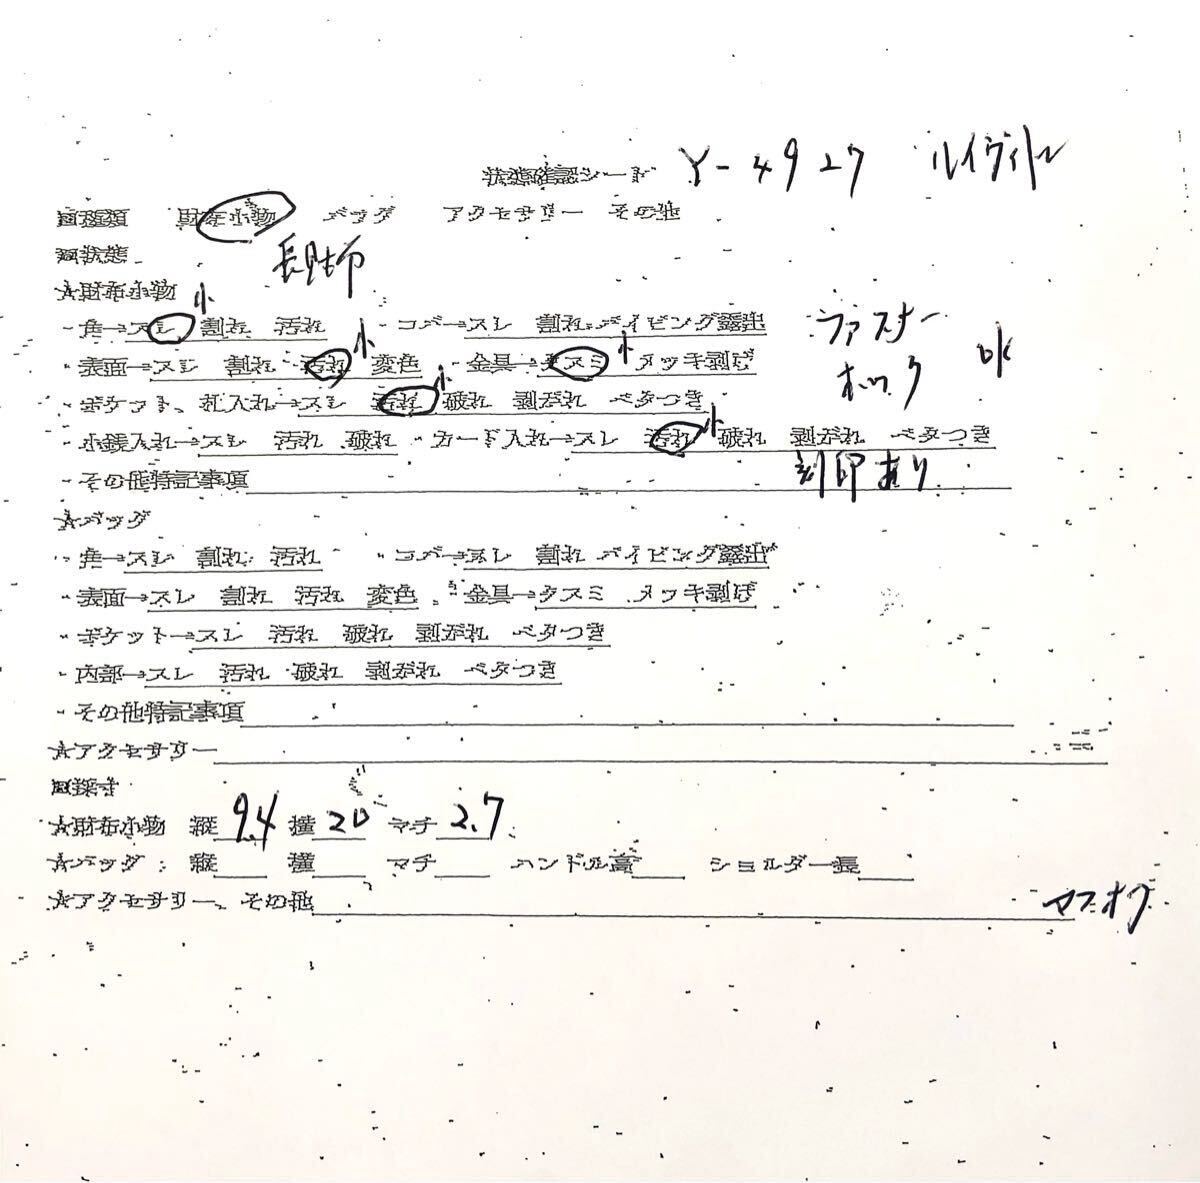 状態確認シート Y-4927 ルイヴィトン
□種類 財布小物 バッグ アクセサリー その他
□状態 長財布
★財布小物
・角→スレ 小 割れ 汚れ ・コバ→スレ 割れ パイピング露出 ファスナー
・表面→スレ 割れ 汚れ 小 変色 ・金具→クスミ 小 メッキ剥げ ホック OK
・ポケット、札入れ→スレ 汚れ 小 破れ 剥がれ ベタつき
・小銭入れ→スレ 汚れ 破れ ・カード入れ→スレ 汚れ 小 破れ 剥がれ ベタつき
・その他特記事項 刻印あり
★バッグ
・角→スレ 割れ 汚れ ・コバ→スレ 割れ パイピング露出
・表面→スレ 割れ 汚れ 変色 ・金具→クスミ メッキ剥げ
・ポケット→スレ 汚れ 破れ 剥がれ ベタつき
・内部→スレ 汚れ 破れ 剥がれ ベタつき
・その他特記事項
★アクセサリー
□採寸
★財布小物 縦 9.4 横 20 マチ 2.7
★バッグ:縦 横 マチ ハンドル高 ショルダー長
★アクセサリー、その他